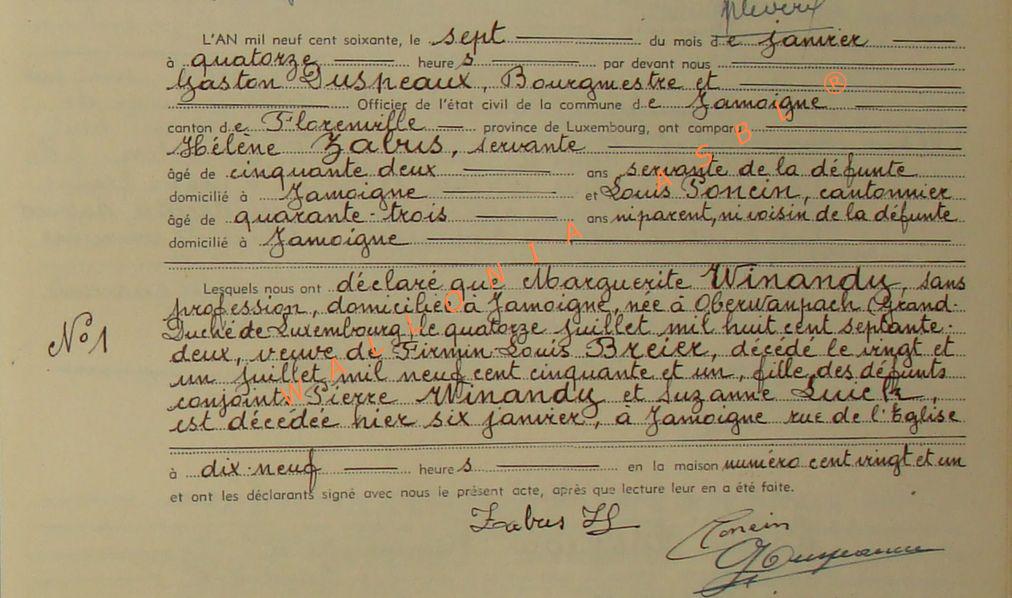 L'AN mil neuf cent soixante, le sept du mois de janvier
à quatorze heures par devant nous
Gaston Duspeaux, Bourgmestre et
Officier de l'état civil de la commune de Jamoigne
canton de Florenville province de Luxembourg, ont comparu
Hélène Zabus, servante
âgé de cinquante deux ans servante de la défunte
domicilié à Jamoigne et Louis Poncin, cantonnier
âgé de quarante-trois ans ni parent, ni voisin de la défunte
domicilié à Jamoigne
Lesquels nous ont déclaré que Marguerite Winandy, sans
profession, domiciliée à Jamoigne, née à Oberwanpach (Grand-
Duché de Luxembourg) le quatorze juillet mil huit cent septante-
N° 1
deux, veuve de Firmin-Louis Breier, décédé le vingt et
un juillet mil neuf cent cinquante et un, fille des défunts
conjoints Pierre Winandy et Suzanne Luick,
est décédée hier six janvier, à Jamoigne rue de l'Eglise
à dix-neuf heures en la maison numéro cent vingt et un
et ont les déclarants signé avec nous le présent acte, après que lecture leur en a été faite.
Zabus H
Poncin
WALLONIA ASBL ®